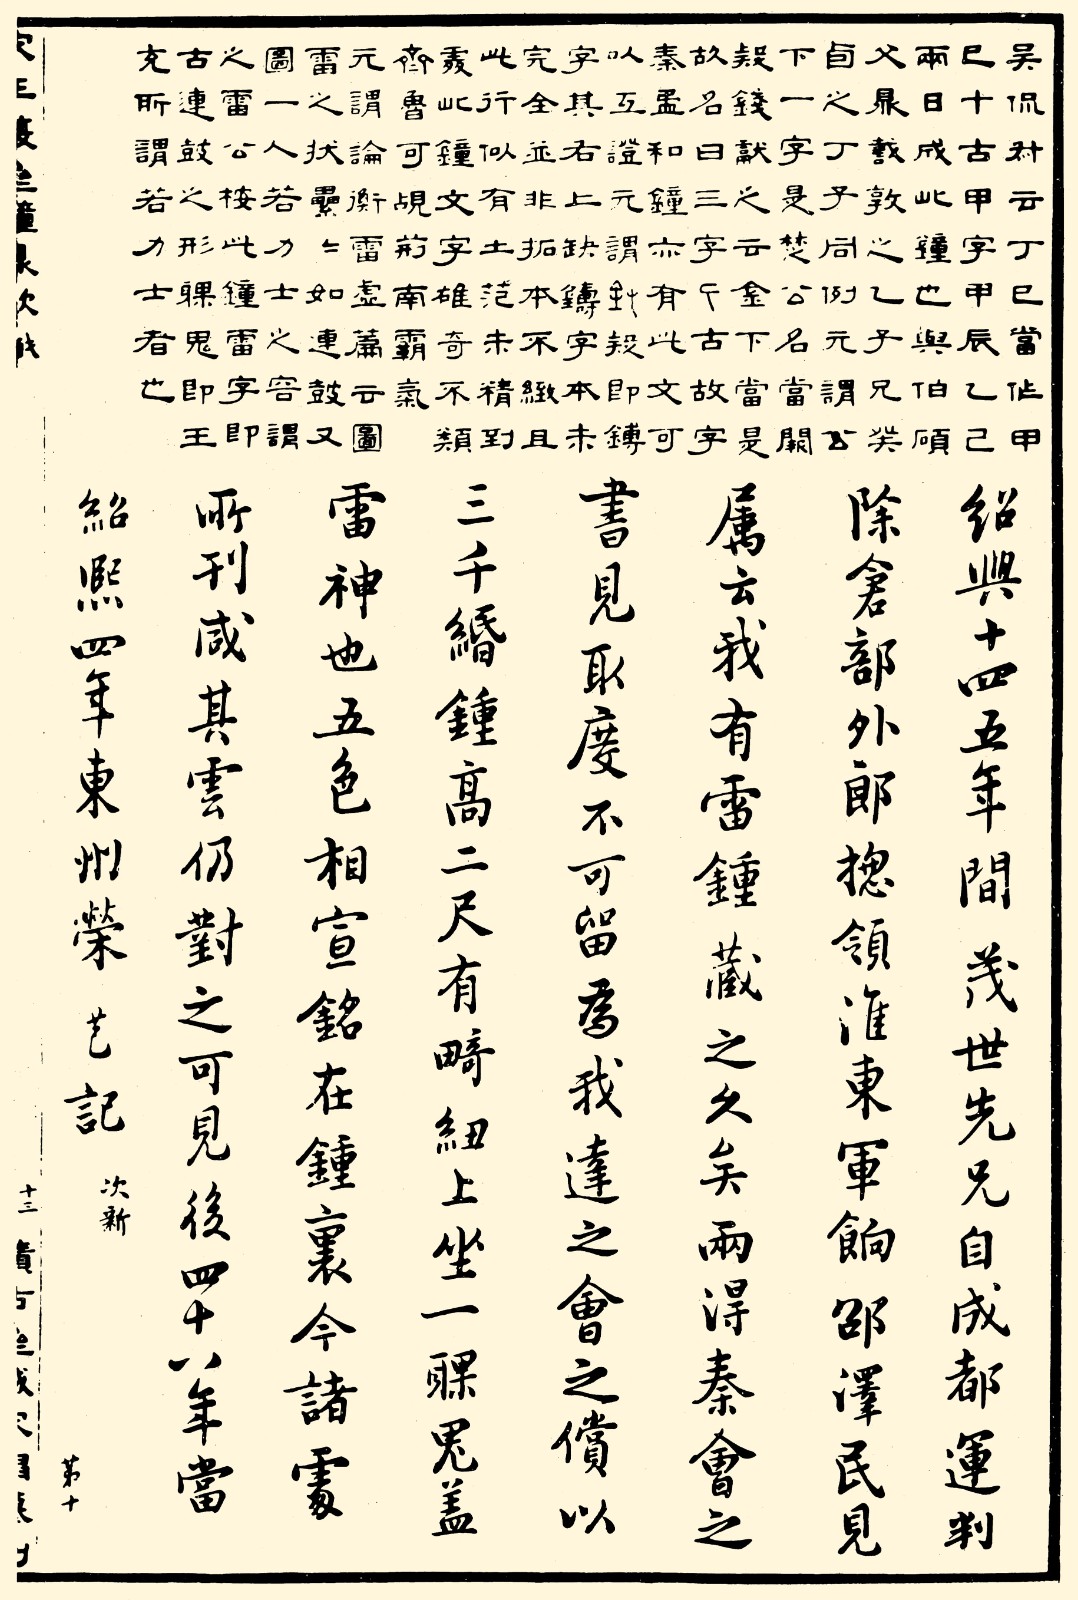 吳侃尗云丁巳當作甲
巳十古甲字甲辰乙己
兩日成此鐘也與伯碩
父鼎䜌敦之乙子兄癸
卣之丁子同例元謂公
下一字是楚公名當闕
殺錢獻之云金下當是
故名曰三字亇古故字
秦盄和鐘亦有此文可
以互證元謂針殺即鎛
字其右上缺鑄字本未
完全並非拓本不緻且
此行似有土范未精到
爰此鐘文字雄奇不類
齊魯可覘荊南霸氣
元謂論衡雷虛篇云圖
雷之狀纍〻如連鼓又
圖一人若力士之容謂
之雷公桉此鐘雷字即
古連鼓之形髁鬼即王
充所謂若力士者也
紹興十四五年間 茂世先兄自成都運判
除倉部外郎揔領淮東軍餉邵澤民見
属云我有雷鍾藏之久矣兩得秦會之
書見取度不可留為我達之會之償以
三千緡鍾高二尺有畸紐上坐一髁鬼盖
雷神也五色相宣銘在鍾裏今諸處
所刊咸其雲仍對之可見後四十八年當
紹熙四年東州榮芑記
次新
第十
十三